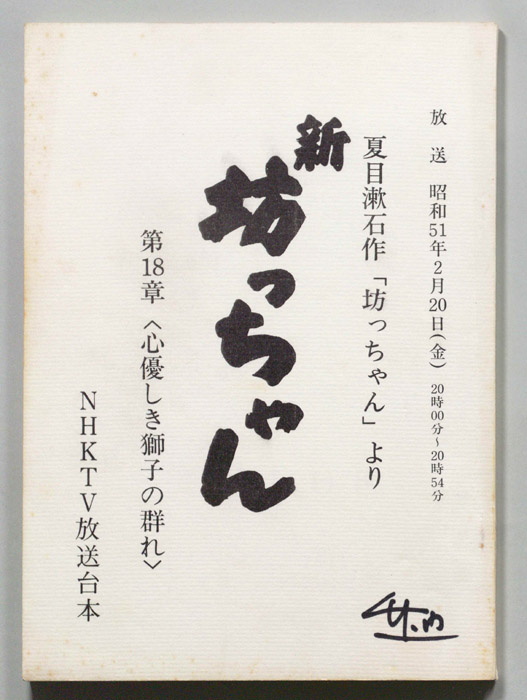 放送 昭和51年2月20日(金) 20時00分~20時54分
夏目漱石作「坊っちゃん」より
新坊っちゃん
第18章〈心優しき獅子の群れ〉
NHKTV放送台本